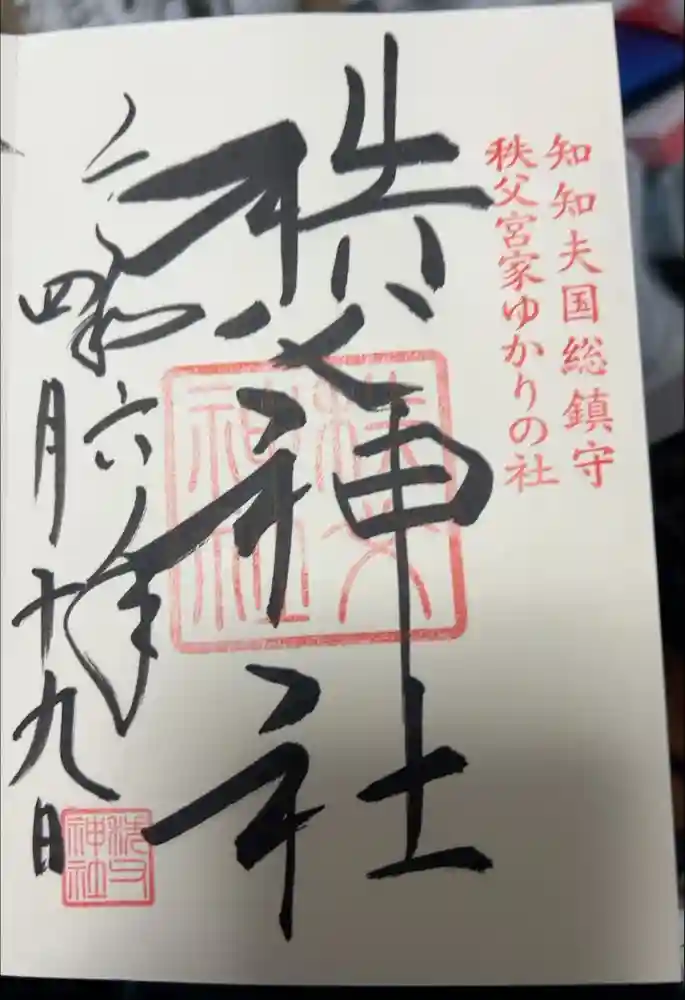 知知夫国総鎮守
秩父宮家ゆかりの社
秩父神社
令和六年
四月十九日
秩父神社
秩父神社